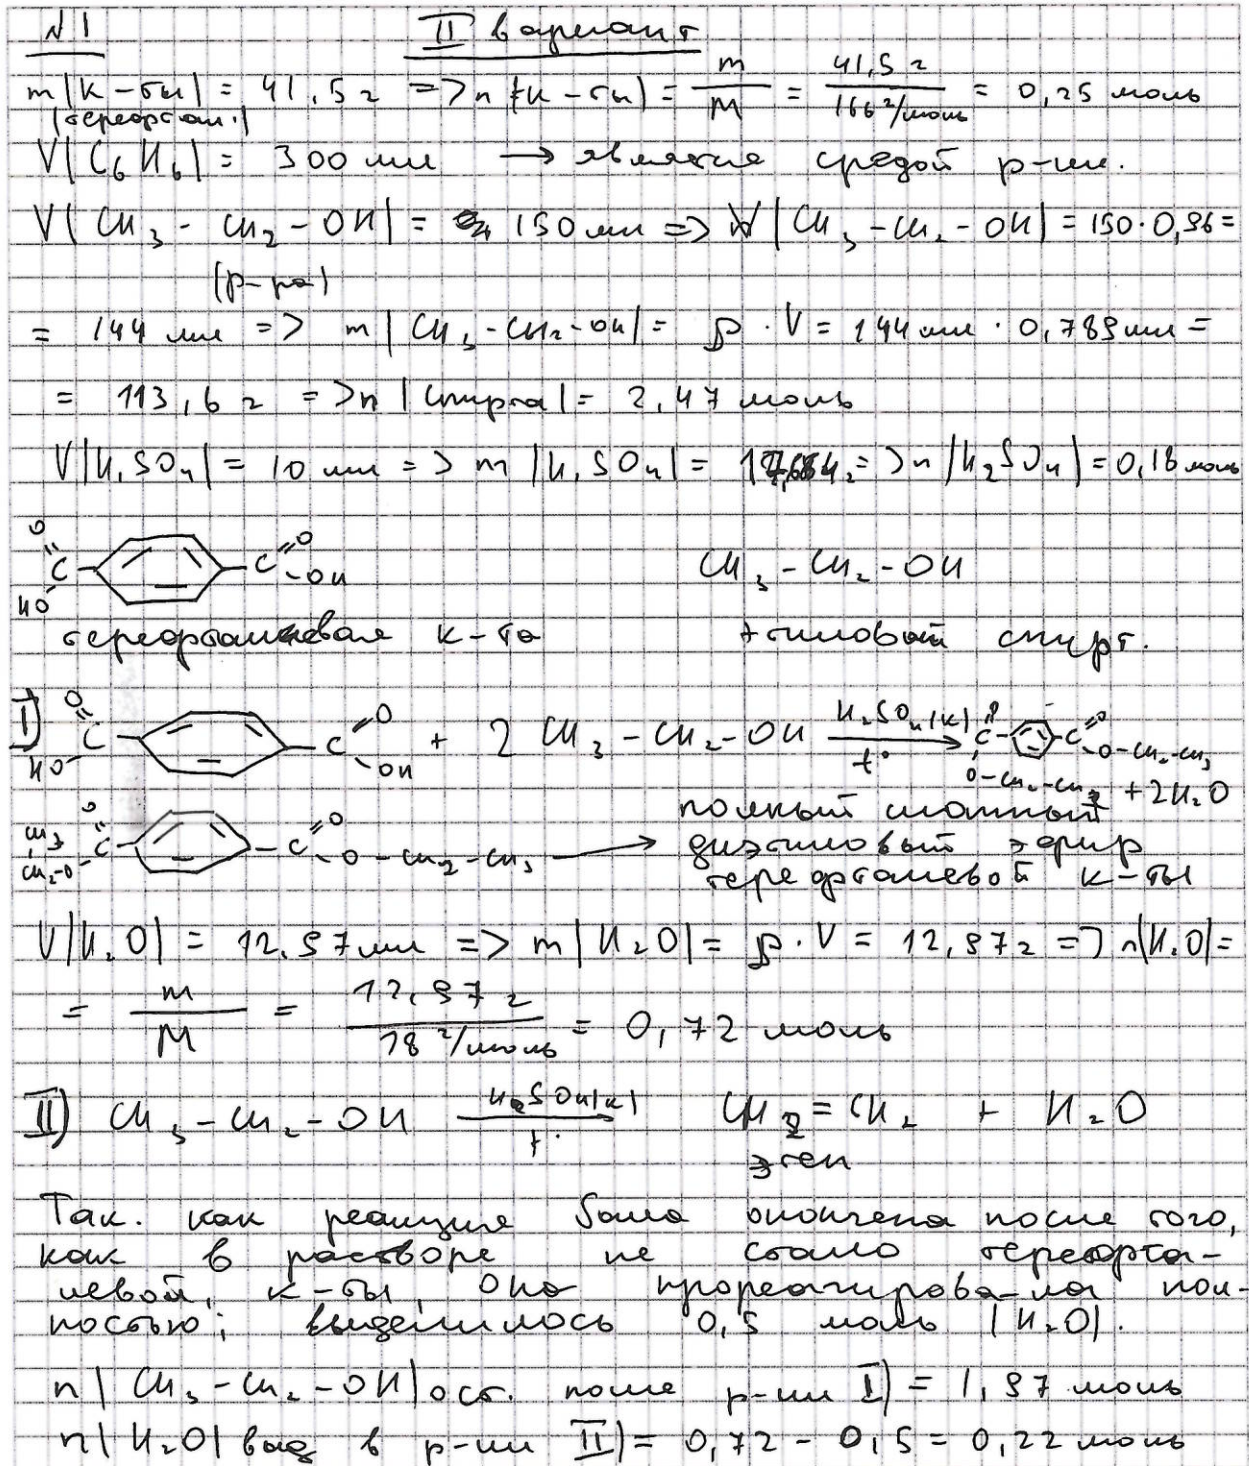 №1 II вариант
m(к-ты) = 41,5 г => n(к-ты) = m/M = 41,5 г / 166 г/моль = 0,25 моль
(терефтал.)
V(C₆H₆) = 300 мл → является средой р-ии.
V(CH₃ - CH₂ - OH) = 150 мл => V(CH₃ - CH₂ - OH) = 150 · 0,96 =
(р-ра)
= 144 мл => m(CH₃ - CH₂ - OH) = ρ · V = 144 мл · 0,789 мл =
= 113,6 г => n(спирта) = 2,47 моль
V(H₂SO₄) = 10 мл => m(H₂SO₄) = г => n(H₂SO₄) = 0,18 моль
O HO C C O OH CH₃ - CH₂ - OH
терефталевая к-та этиловый спирт.
I) O HO C C O OH + 2 CH₃ - CH₂ - OH H₂SO₄(к) t° → O C C O O-CH₂-CH₃
O-CH₂-CH₃ + 2H₂O
CH₃ CH₂-O C O C O O - CH₂ - CH₃ → полный сложный
диэтиловый эфир
терефталевой к-ты
V(H₂O) = 12,97 мл => m(H₂O) = ρ · V = 12,97 г => n(H₂O) =
= m/M = 12,97 г / 18 г/моль = 0,72 моль
II) CH₃ - CH₂ - OH H₂SO₄(к) t° → CH₂ = CH₂ + H₂O
этен
Так. как реакция была окончена после того,
как в растворе не стало терефта-
левой, к-ты, она прореагировала пол-
ностью; выделилось 0,5 моль (H₂O).
n(CH₃ - CH₂ - OH) ост. после р-ии I) = 1,97 моль
n(H₂O) выд в р-ии II) = 0,72 - 0,5 = 0,22 моль